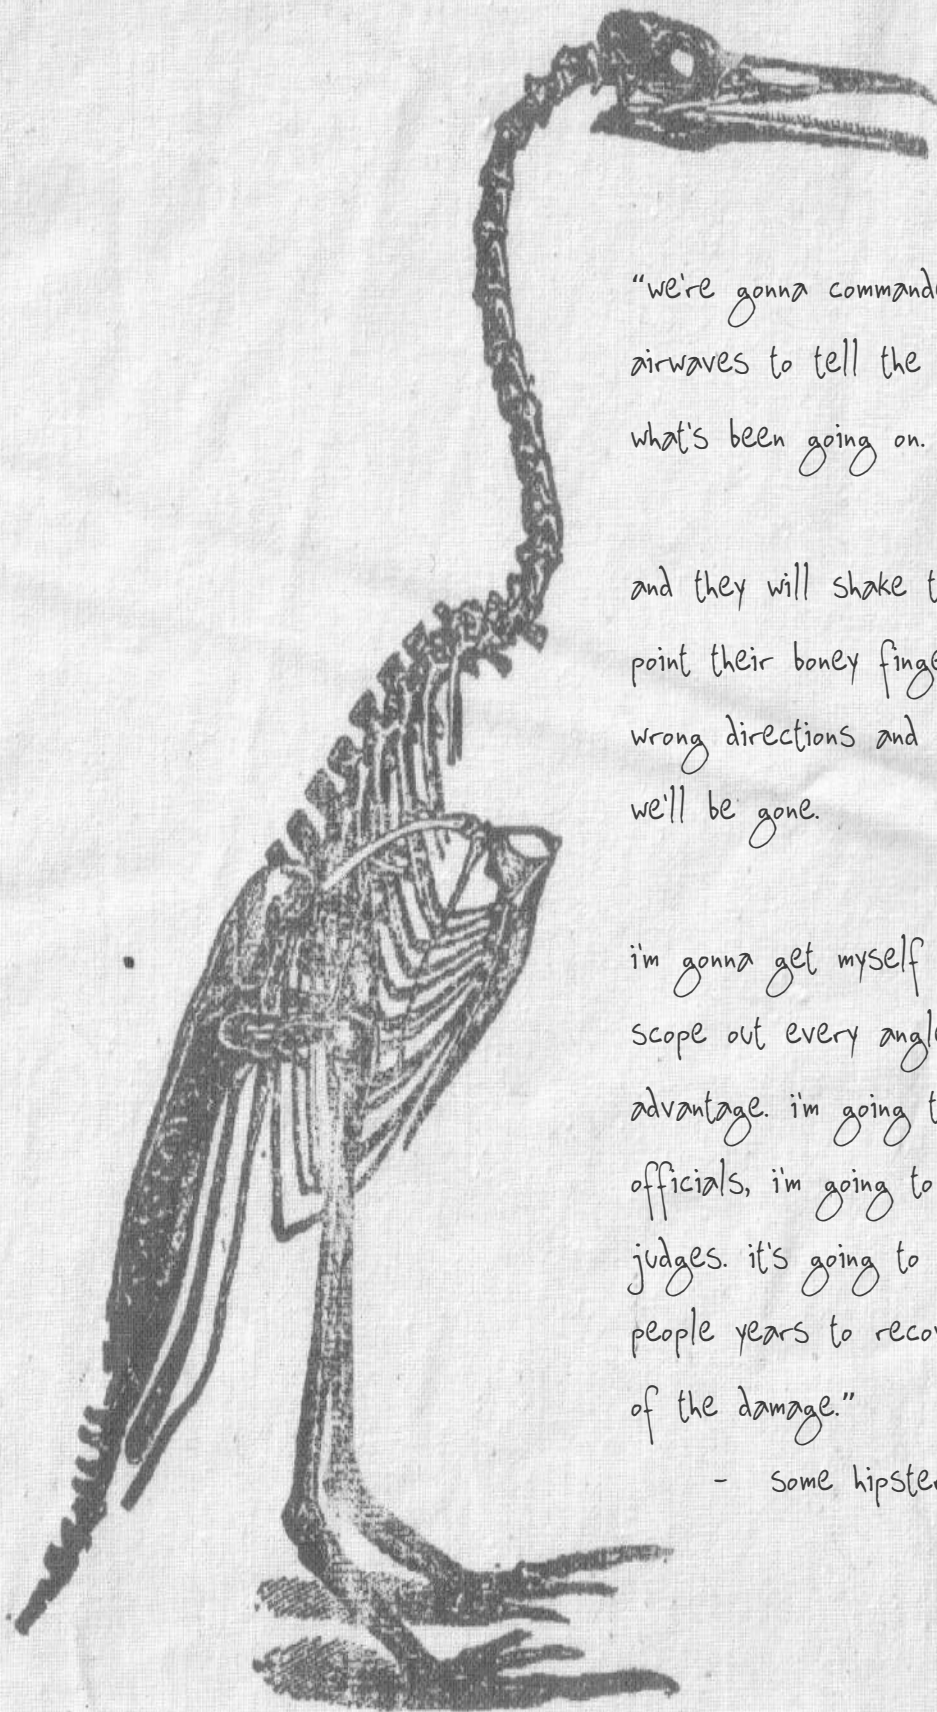 “we're gonna
airwaves to tell the
what's been going on.
and they will shake
point their boney
wrong directions and
we'll be gone.
i'm gonna get myself
scope out every
advantage. i'm going
officials, i'm going to
judges. it's going to
people years to
of the damage.”
- some